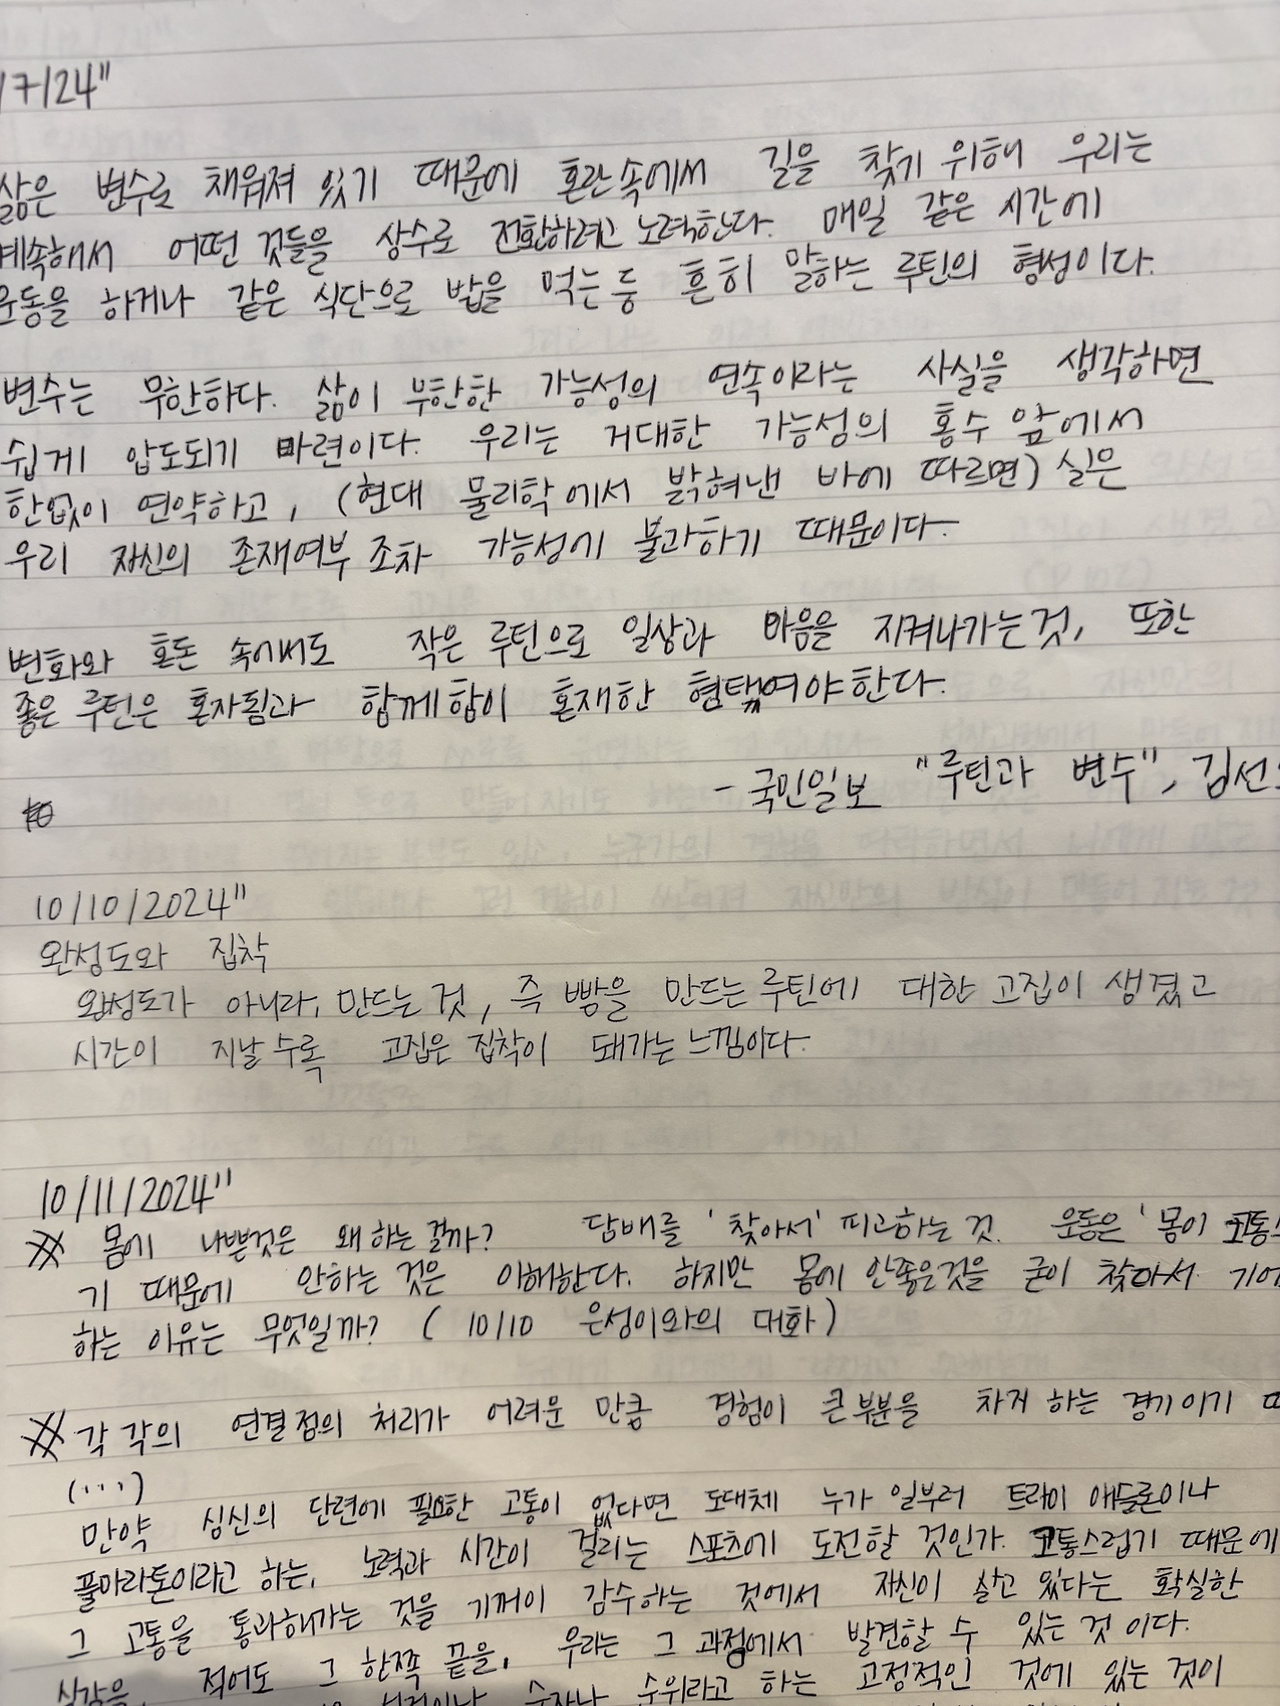 /7/24"
삶은 변수로 채워져 있기 때문에 혼란속에서 길을 찾기 위해 우리는
계속해서 어떤 것들을 상수로 전환하려고 노력한다. 매일 같은 시간에
운동을 하거나 같은 식단으로 밥을 먹는 등 흔히 말하는 루틴의 형성이다.
변수는 무한하다. 삶이 무한한 가능성의 연속이라는 사실을 생각하면
쉽게 압도되기 마련이다. 우리는 거대한 가능성의 홍수 앞에서
한없이 연약하고, (현대 물리학에서 밝혀낸 바에 따르면) 실은
우리 자신의 존재여부 조차 가능성에 불과하기 때문이다.
변화와 혼돈 속에서도 작은 루턴으로 일상과 마음을 지켜나가는것, 또한
좋은 루턴은 혼자됨과 함께함이 혼재한 형태여야한다.
- 국민일보 "루틴과 변수", 김선
10/10/2024"
완성도와 집착
완성도가 아니라, 만드는 것, 즉 빵을 만드는 루틴에 대한 고집이 생겼고
시간이 지날 수록 고집은 집착이 돼가는 느낌이다.
10/11/2024"
※ 몸에 나쁜것은 왜 하는 걸까? 담배를 '찾아서' 피고하는 것. 운동은 '몸이 고통스
기 때문에 안하는 것은 이해한다. 하지만 몸에 안좋은것을 굳이 찾아서 기어
하는 이유는 무엇일까? ( 10/10 은성이와의 대화 )
※ 각 각의 연결점의 처리가 어려운 만큼 경험이 큰 부분을 차지 하는 경기이기 때
(...)
만약 심신의 단련에 필요한 고통이 없다면 도대체 누가 일부러 트라이 애슬론이나
풀마라톤이라고 하는, 노력과 시간이 걸리는 스포츠에 도전할 것인가. 고통스럽기 때문에
그 고통을 통과해가는 것을 기꺼이 감수하는 것에서 자신이 살고 있다는 확실한
실감을, 적어도 그 한쪽 끝을, 우리는 그 과정에서 발견할 수 있는 것 이다.
성적이나 숫자나 순위라고 하는 고정적인 것에 있는 것이